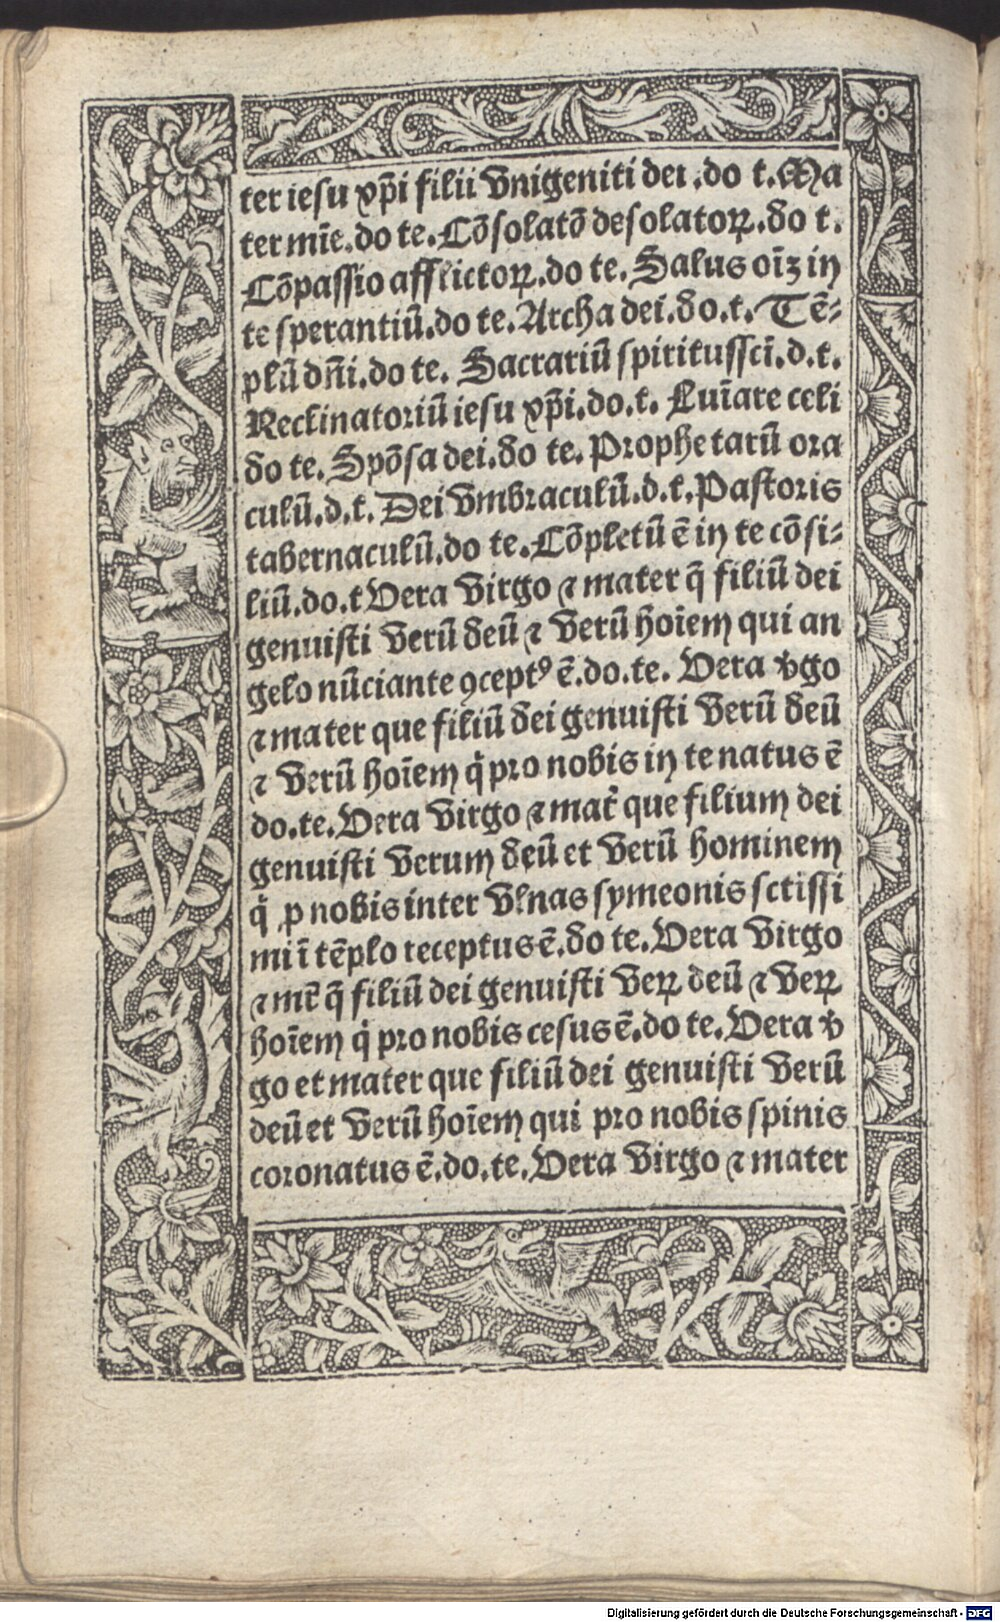 ter iesu xp̄i filii vnigeniti dei .do t. Ma
ter mīe. do te. Cōsolatō desolatoꝝ. do t.
Cōpassio afflictoꝝ. do te. Salus oīꝫ in
te sperantiū. do te. Archa dei. do. t. Tē-
plū dn̄i. do te. Sacrariū spiritussc̄i. d. t.
Reclinatoriū iesu xp̄i. do. t. Luīare celi
do te. Spōsa dei. do te. Prophetarū ora
culū. d. t. Dei vmbraculū. d. t. Pastoris
tabernaculū. do te. Cōpletū ē in te cōsi-
liū. do. t Vera virgo ⁊ mater q̄ filiū dei
genuisti verū deū ⁊ verū hoīem qui an
gelo nūciante ꝯceptꝰ ē. do. te. Vera v̓go
⁊ mater que filiū dei genuisti verū deū
⁊ verū hoīem q̇ pro nobis in te natus ē
do. te. Vera virgo ⁊ mat̄ que filium dei
genuisti verum deū et verū hominem
q̇ ꝑ nobis inter vlnas symeonis sctissi
mi ī tēplo receptus ē. do te. Vera virgo
⁊ mr̄ q̄ filiū dei genuisti veꝝ deū ⁊ veꝝ
hoīem q̇ pro nobis cesus ē. do te. Vera v̓
go et mater que filiū dei genuisti verū
deū et verū hoīem qui pro nobis spinis
coronatus ē. do. te. Vera virgo ⁊ mater
Digitalisierung gefördert durch die Deutsche Forschungsgemeinschaft - DFG